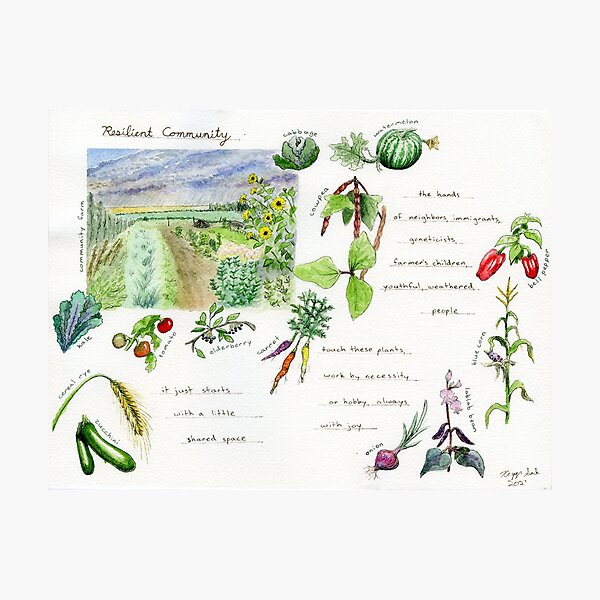 Resilient Community
cabbage
watermelon
community farm
cowpea
the hands
of neighbors, immigrants,
geneticists,
farmer's children,
youthful, weathered,
people
bell pepper
kale
tomato
elderberry
carrot
blue corn
touch these plants,
work by necessity
or hobby, always
with joy
cereal rye
zucchini
it just starts
with a little
shared space
onion
lablab bean
2021